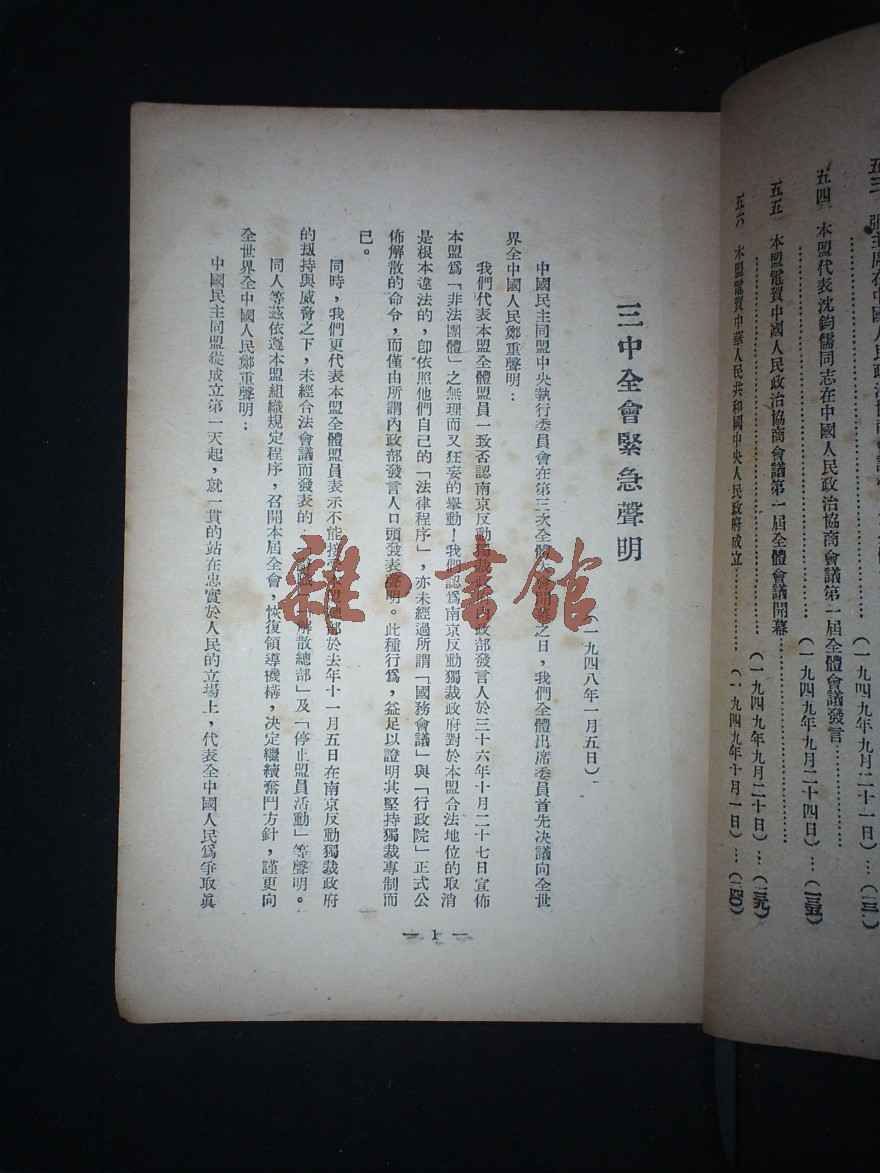 五三 張主席在中國人民政治協商會議
(一九四九年九月二十一日)…(一三
五四 本盟代表沈鈞儒同志在中國人民政治協商會議第一屆全體會議發言……
……(一九四九年九月二十四日)…(一三五)
五五 本盟電賀中國人民政治協商會議第一屆全體會議開幕……
……(一九四九年九月二十日)…(一三九)
五六 本盟電賀中華人民共和國中央人民政府成立……(一九四九年十月一日)…(一四〇)
三中全會緊急聲明
(一九四八年一月五日)
中國民主同盟中央執行委員會在第三次全體大會開幕之日,我們全體出席委員首先決議向全世
界全中國人民鄭重聲明:
我們代表本盟全體盟員一致否認南京反動獨裁政府內政部發言人於三十六年十月二十七日宣佈
本盟爲「非法團體」之無理而又狂妄的舉動!我們認爲南京反動獨裁政府對於本盟合法地位的取消
是根本違法的,卽依照他們自己的「法律程序」,亦未經過所謂「國務會議」與「行政院」正式公
佈解散的命令,而僅由所謂內政部發言人口頭發表聲明。此種行爲,益足以證明其堅持獨裁專制而
已。
同時,我們更代表本盟全體盟員表示不能接受本盟總部於去年十一月五日在南京反動獨裁政府
的刼持與威脅之下,未經合法會議而發表的「解散總部」及「停止盟員活動」等聲明。
同人等茲依遵本盟組織規定程序,召開本屆全會,恢復領導機構,決定繼續奮鬥方針,謹更向
全世界全中國人民鄭重聲明:
中國民主同盟從成立第一天起,就一貫的站在忠實於人民的立場上,代表全中國人民爲爭取眞
— 1 —
雜書館